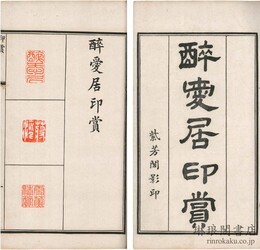 醉愛居印賞
芳閣影印
醉愛居印賞
印賞
琳琅閣書店
rinrokaku.co.jp